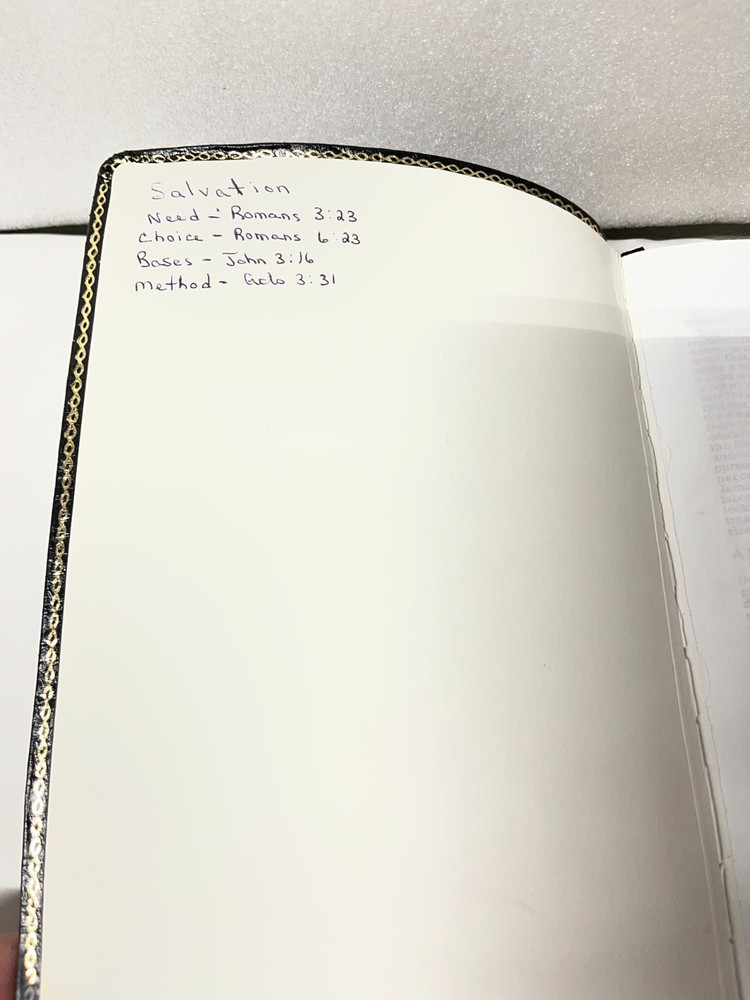 Salvation
Need - Romans 3:23
Choice - Romans 6:23
Bases - John 3:16
Method - Acts 3:31